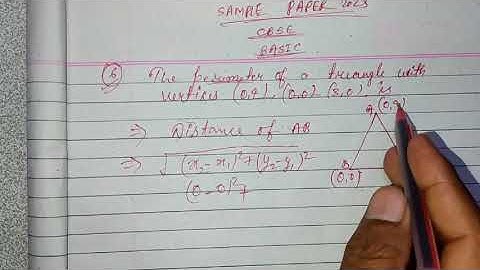 SAMPLE PAPER 2023
CBSE
BASIC
6 The perimeter of a triangle with
vertices (0,4), (0,0) (3,0) is
A (0,
⇒ Distance of AB
⇒ √(x₂-x₁)²+(y₂-y₁)²
B
(0,0)
(0-0)²+